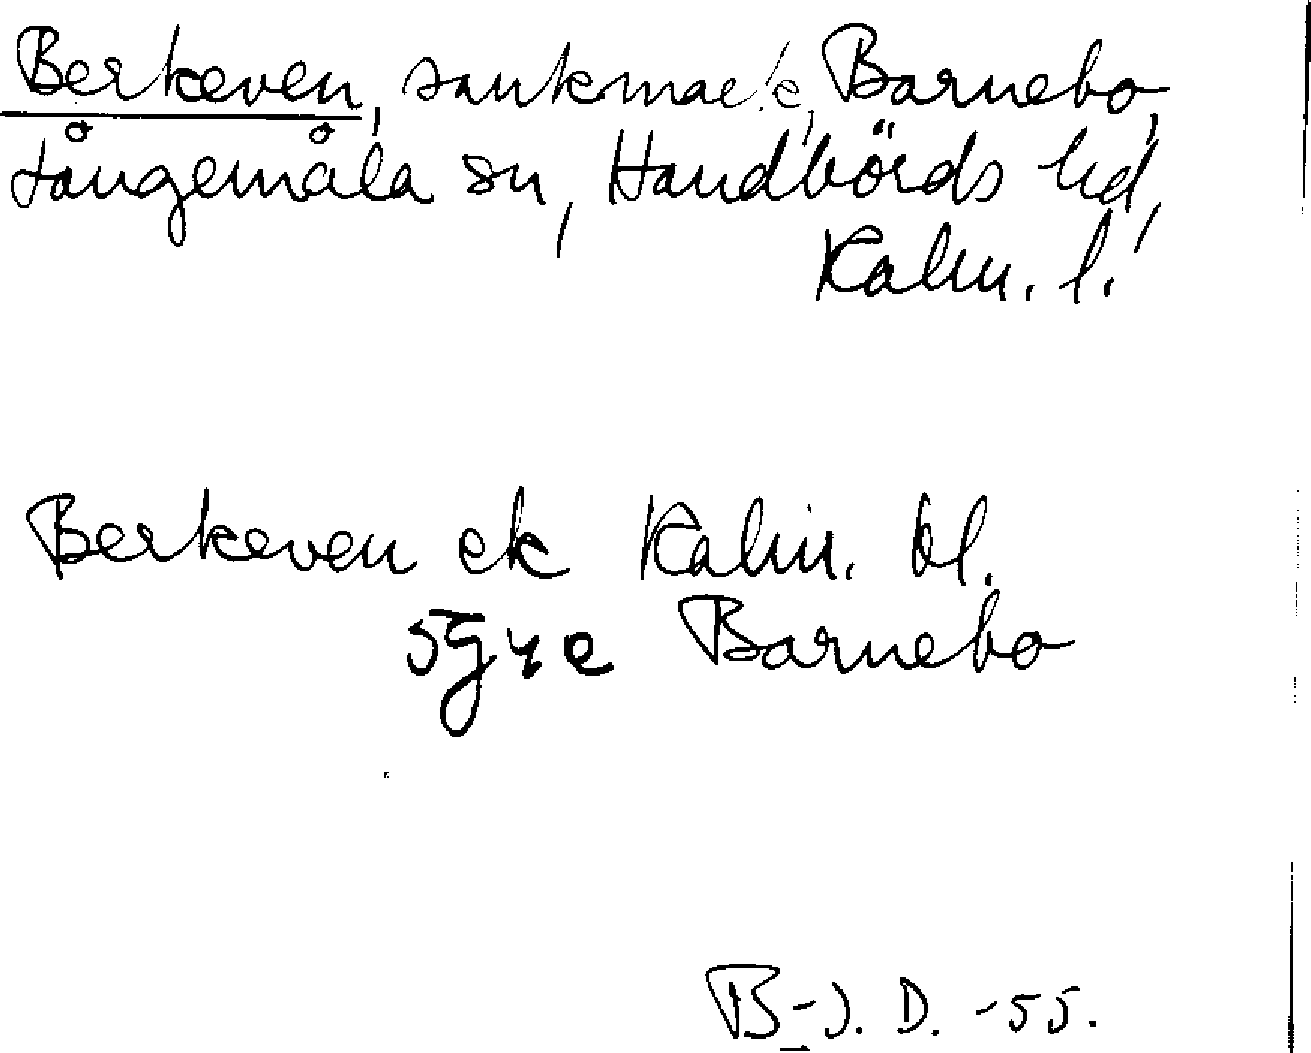 Berkeven, sankmark, Barnebo,
Långemåla sn, Handbörds hd,
Kalm. l.
Berkeven ek Kalm. bl.
5G4e Barnebo
B-J. D. -55.